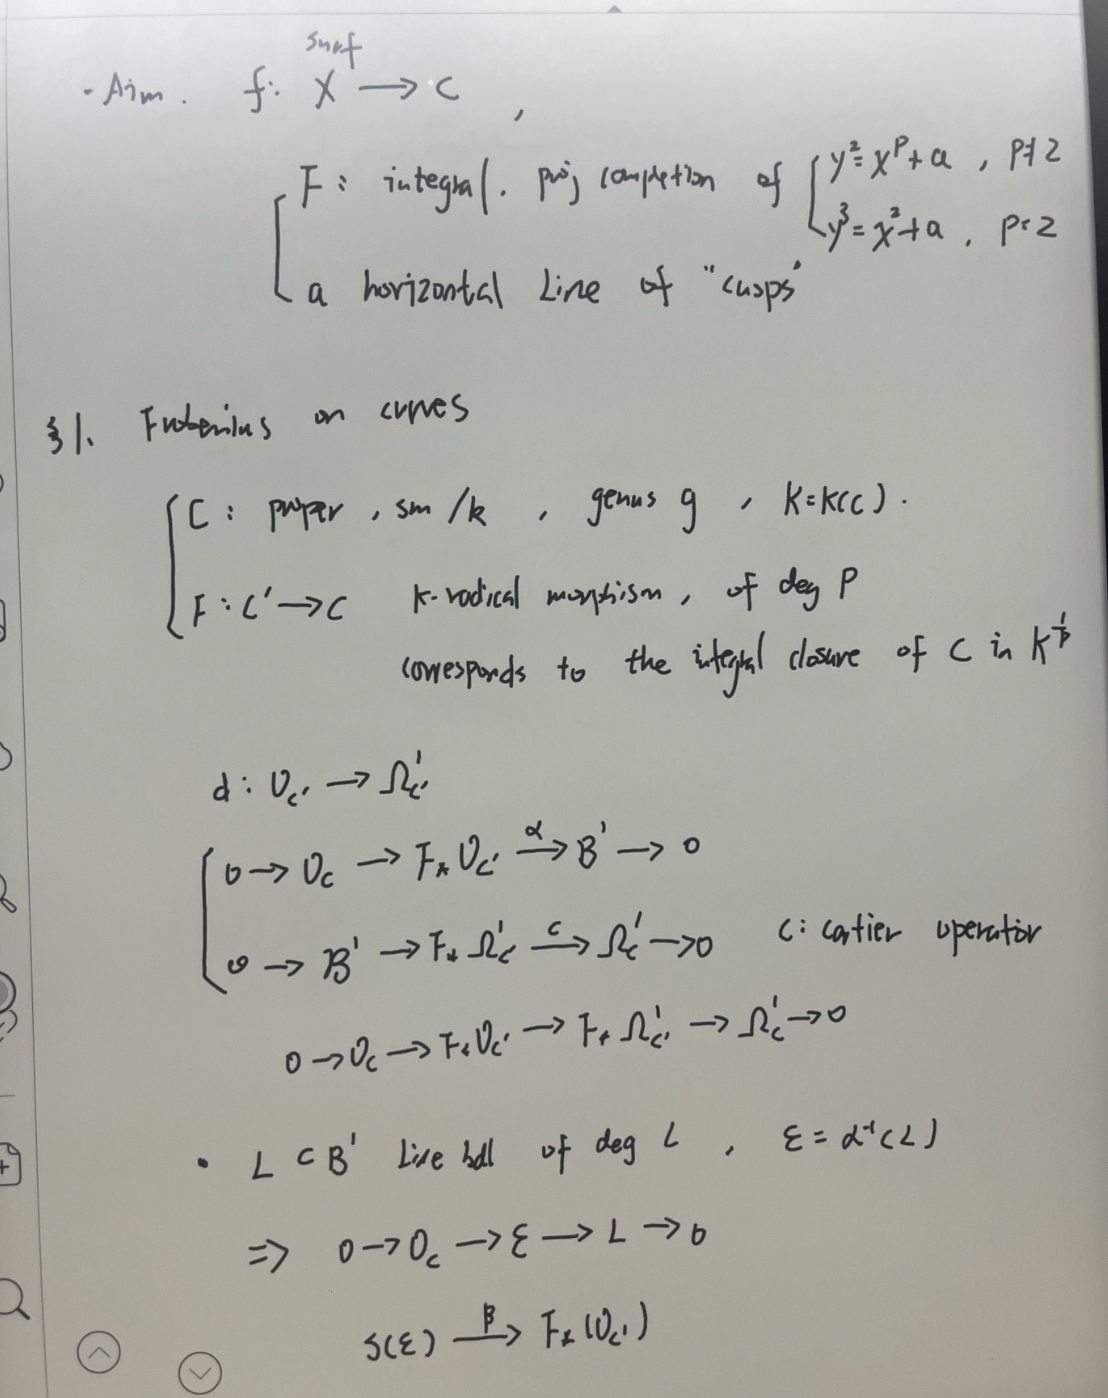 surf
· Aim. f: X → C ,
F: integral. proj completion of { y² = x^p + a , p≠2
y³ = x² + a , p=2
a horizontal Line of "cusps"
§1. Frobenius on curves
C: proper, sm /k , genus g , K=k(C).
F: C' → C k-radical morphism, of deg p
corresponds to the integral closure of C in K^{1/p}
d: O_{C'} → Ω¹_{C'}
0 → O_C → F_* O_{C'} →^α B¹ → 0
0 → B¹ → F_* Ω¹_{C'} →^c Ω¹_C → 0 C: cartier operator
0 → O_C → F_* O_{C'} → F_* Ω¹_{C'} → Ω¹_C → 0
• L ⊂ B¹ Line bdl of deg L , ε = α⁻¹(L)
⇒ 0 → O_C → ε → L → 0
S(ε) →^β F_*(O_{C'})